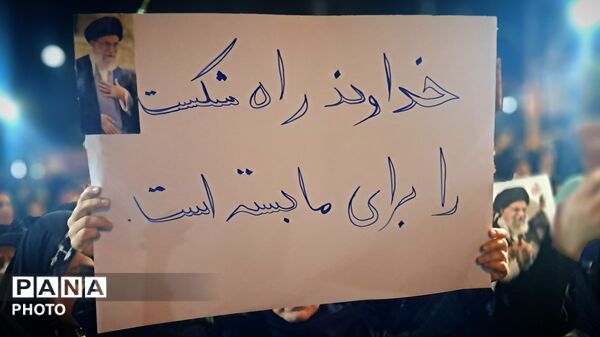 خداوند راه شکست
را برای ما بسته است.
PANA
PHOTO